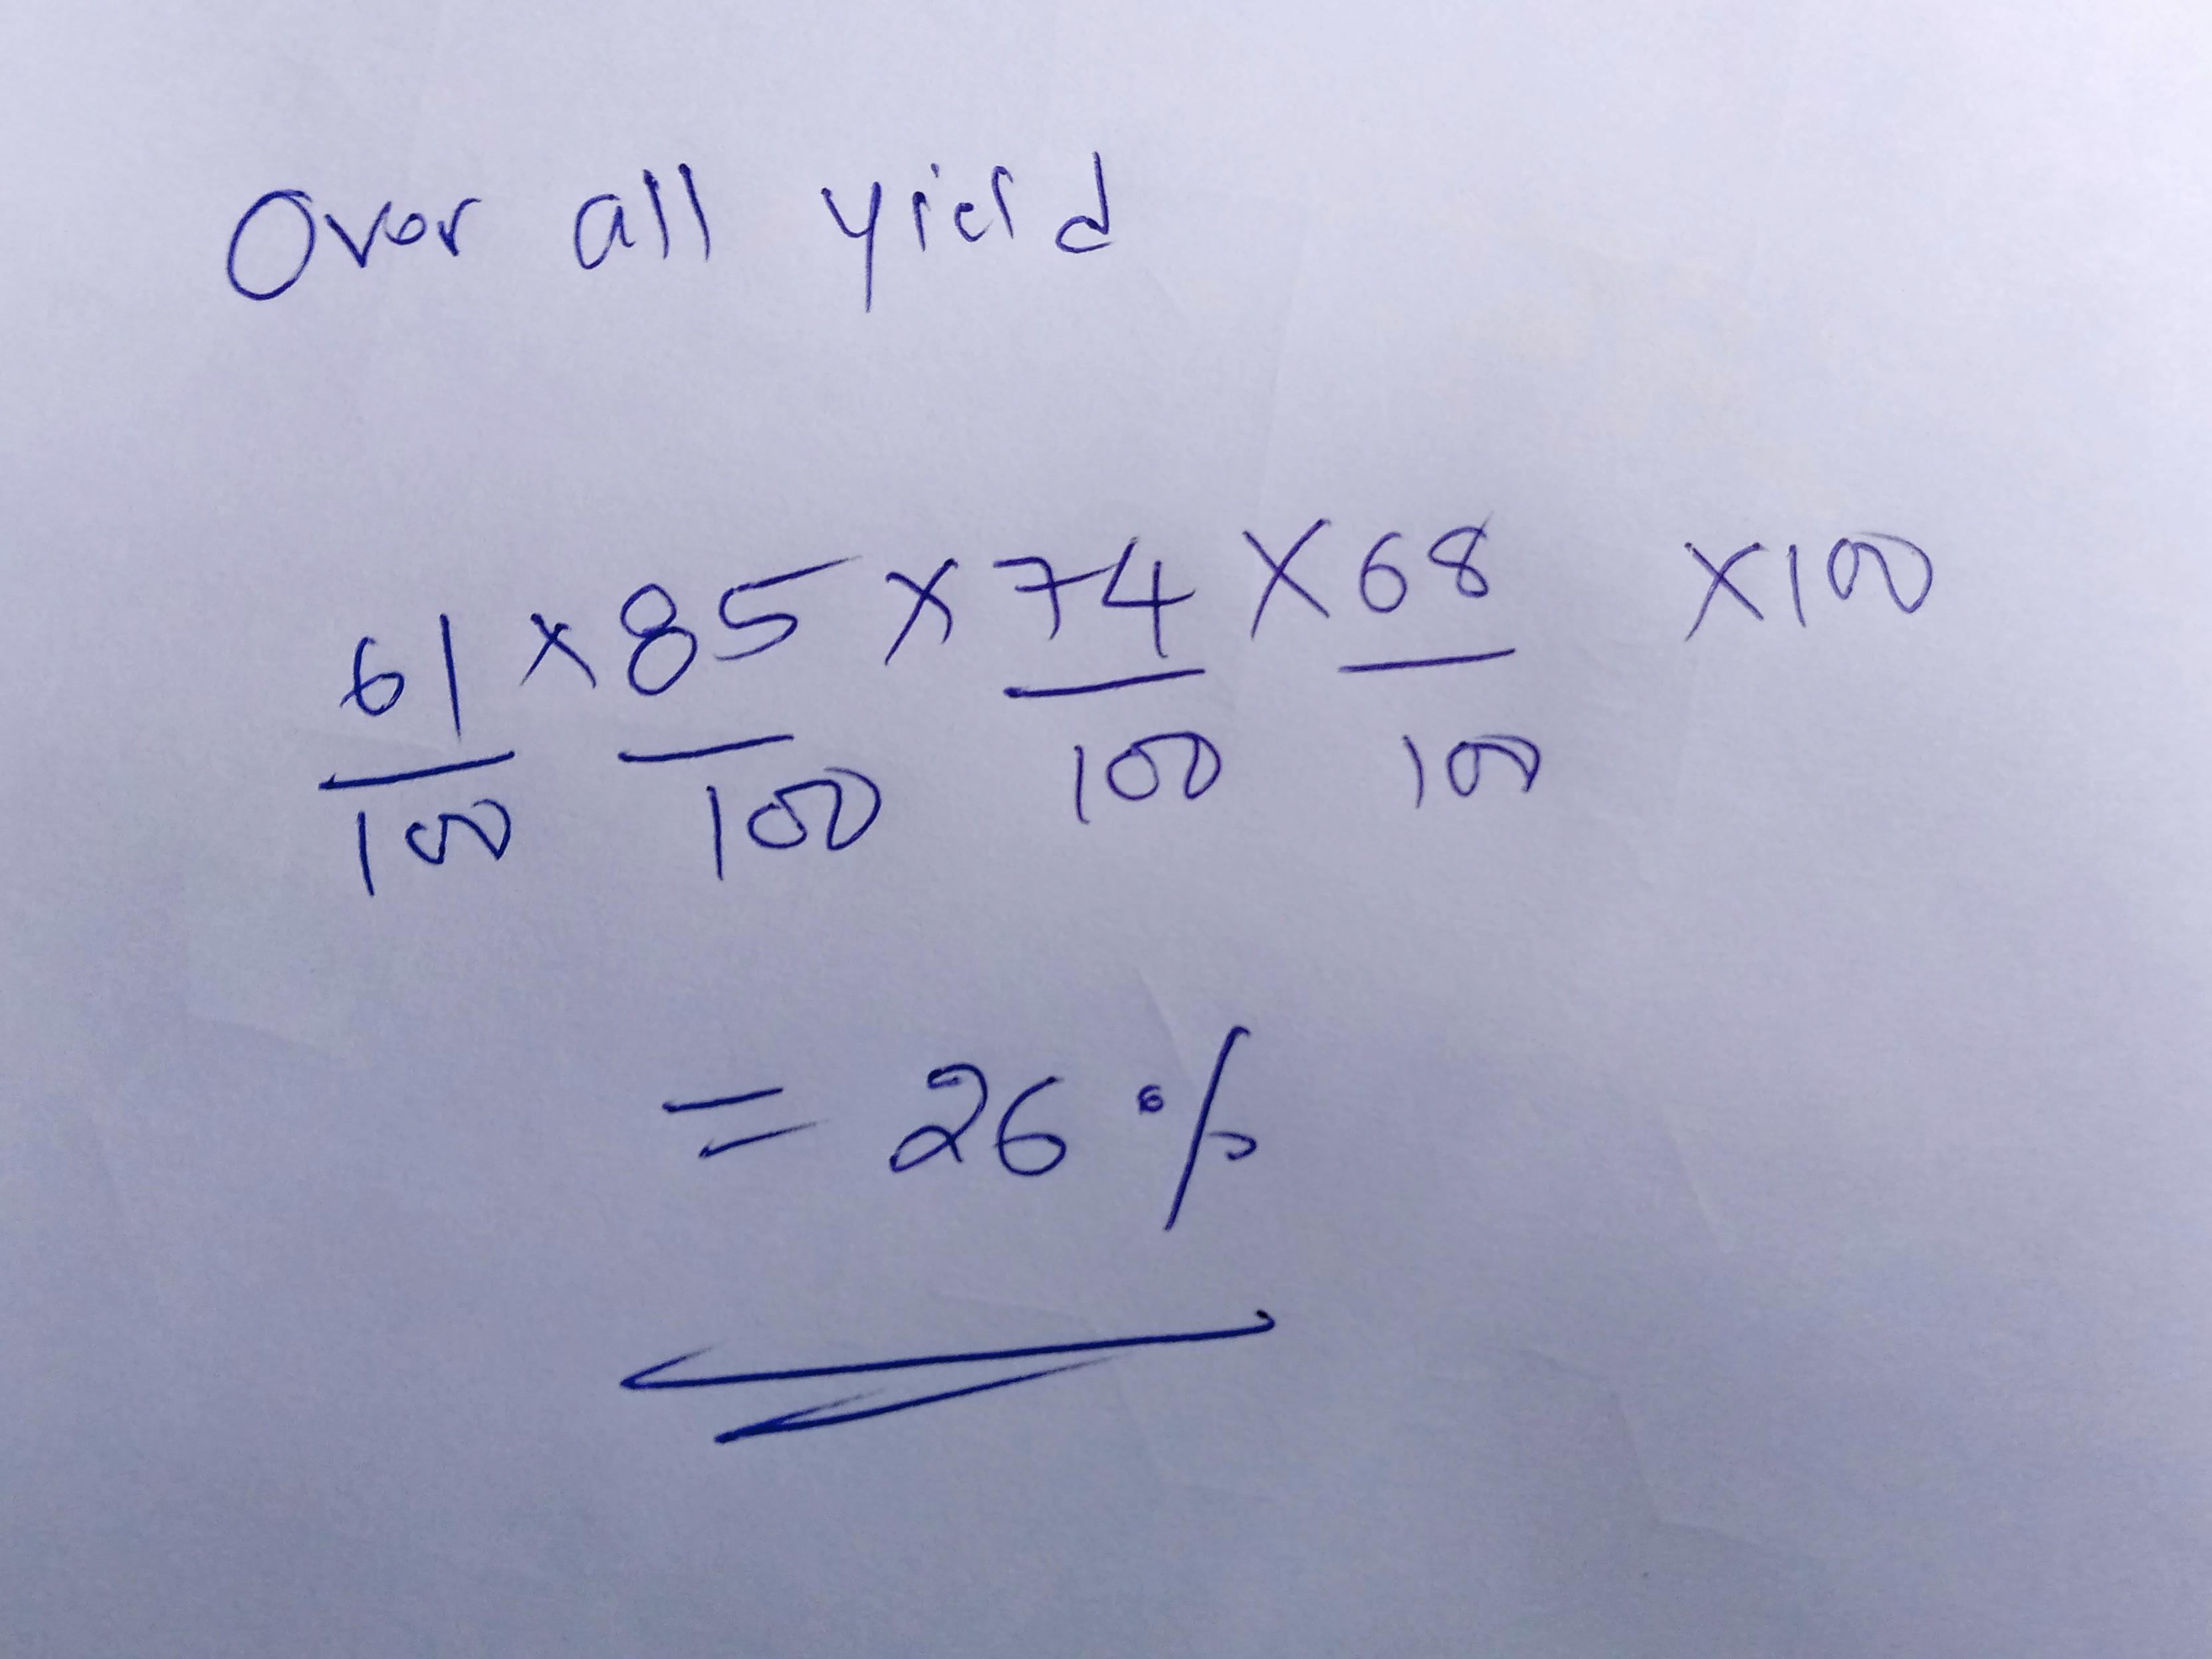 Over all yield
61/100 × 85/100 × 74/100 × 68/100 ×100
= 26 %